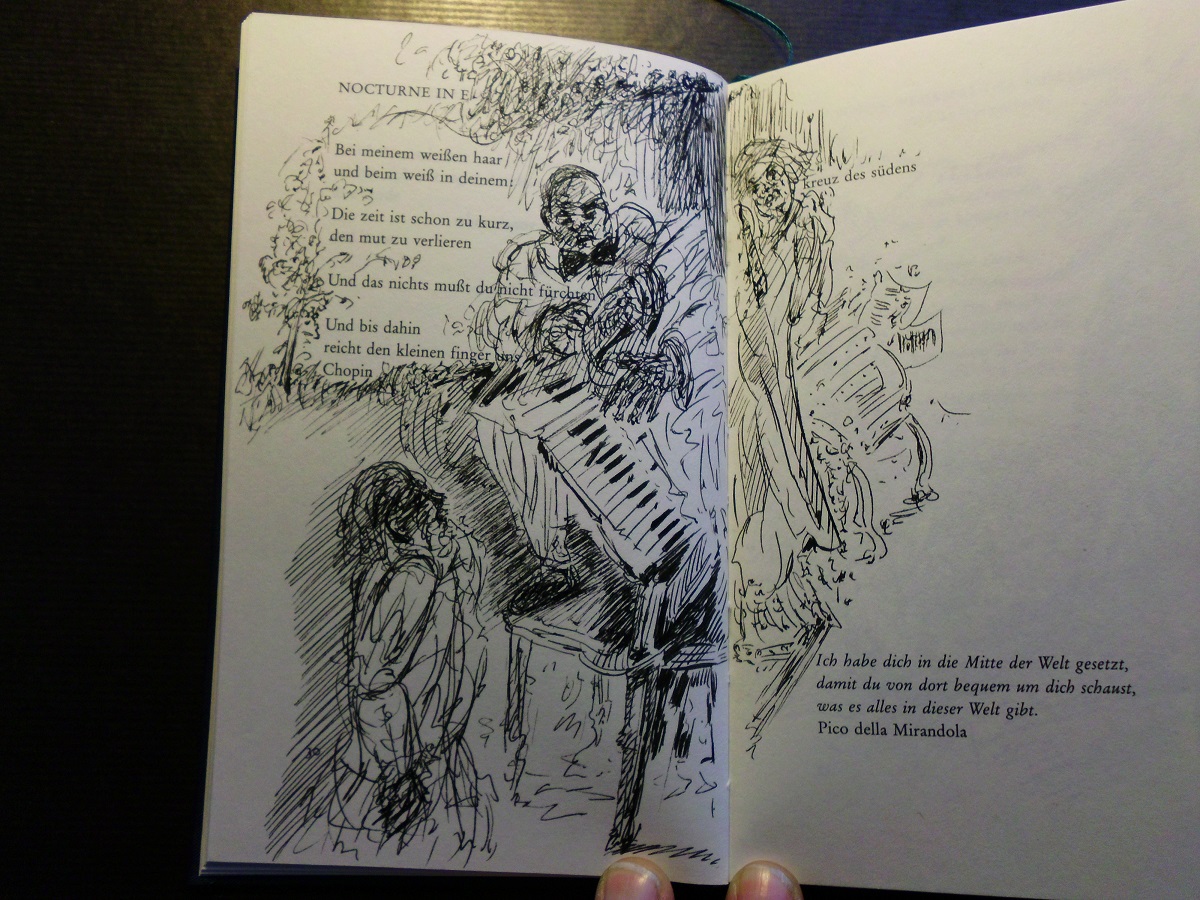 NOCTURNE IN E
Bei meinem weißen haar
und beim weiß in deinem:
Die zeit ist schon zu kurz,
den mut zu verlieren
Und das nichts mußt du nicht fürchten
Und bis dahin
reicht den kleinen finger uns
Chopin
kreuz des südens
Ich habe dich in die Mitte der Welt gesetzt,
damit du von dort bequem um dich schaust,
was es alles in dieser Welt gibt.
Pico della Mirandola